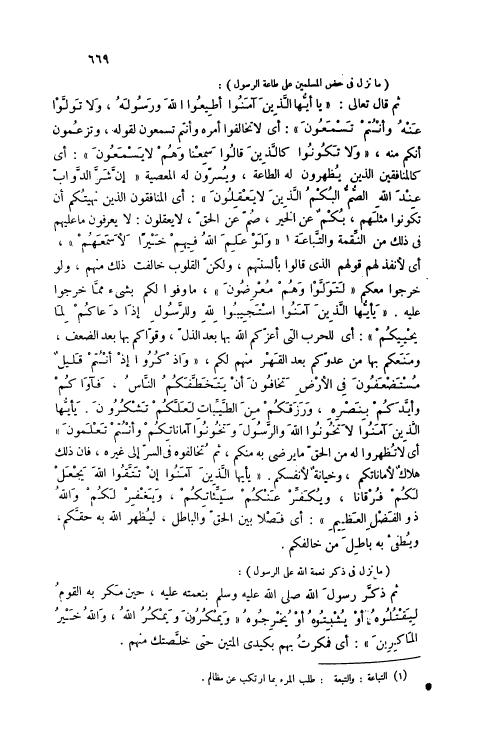 ٦٦٩
( ما نزل فى حض المسلمين على طاعة الرسول ) :
ثم قال تعالى : « يا أيُّها الَّذِينَ آمَنُوا أطِيعُوا اللهَ ورَسُولَهُ ، وَلا تَوَلَّوْا
عَنْهُ وأنْتُمْ تَسْمَعُونَ » : أى لا تخالفوا أمره وأنتم تسمعون لقوله ، وتزعمون
أنكم منه ، « وَلا تَكُونُوا كالَّذِينَ قالُوا سَمِعْنا وَهُمْ لايَسْمَعُونَ » : أى
كالمنافقين الذين يُظهرون له الطاعة ، ويُسرّون له المعصية « إنَّ شَرَّ الدَّوَابّ
عِنْدَ اللهِ الصُّمُّ البُكْمُ الَّذِينَ لايَعْقِلُونَ » : أى المنافقون الذين نهيتكم أن
تكونوا مثلَهم ، بُكْمٌ عن الخير ، صُمّ عن الحقّ ، لايعقلون : لا يعرفون ماعليهم
فى ذلك من النِّقمة والتَّباعة ١ « وَلَوْ عَلِمَ اللهُ فِيهِمْ خَيْرًا لأَسْمَعَهُمْ » ،
أى لأنفذ لهم قولهم الذى قالوا بألسنتهم ، ولكنّ القلوب خالفت ذلك منهم ، ولو
خرجوا معكم « لَتَوَلَّوْا وَهُمْ مُعْرِضُونَ » ، ماوفوا لكم بشىء ممَّا خرجوا
عليه . « يأيُّها الَّذِينَ آمَنُوا اسْتَجِيبُوا للهِ وللرَّسُولِ إذَا دَعاكُمْ لِمَا
يُحْيِيكُمْ » : أى للحرب التى أعزّكم الله بها بعد الذلّ ، وقوّاكم بها بعد الضعف ،
ومنَعكم بها من عدوكم بعد القَهْر منهم لكم ، « وَاذْكُرُوا إذْ أنْتُمْ قَلِيلٌ
مُسْتَضْعَفُونَ فِى الأرْضِ تَخافُونَ أنْ يَتَخَطَّفَكُمُ النَّاسُ ، فَآوَاكُمْ
وأيَّدَكُمْ بِنَصْرِهِ ، وَرَزَقَكُمْ مِنَ الطَّيِّباتِ لَعَلَّكُمْ تَشْكُرُونَ . يأيُّها
الَّذِينَ آمَنُوا لا تَخُونُوا اللهَ والرَّسُولَ وَتَخُونُوا أماناتِكُمْ وأنْتُمْ تَعْلَمُونَ »
أى لاتُظهروا له من الحقّ مايرضى به منكم ، ثم تُخالفوه فى السرّ إلى غيره ، فان ذلك
هلاكٌ لأماناتكم ، وخيانة لأنفسكم . « يأيها الَّذِينَ آمَنُوا إنْ تَتَّقُوا اللهَ يَجْعَلْ
لَكُمْ فُرْقانا ، وَيُكَفِّرْ عَنْكُمْ سَيِّئاتِكُمْ ، وَيَغْفِرْ لَكُمْ وَاللهُ
ذو الفَضْلِ العَظِيمِ » : أى فَصْلا بين الحقّ والباطل ، ليُظهر الله به حقَّكم ،
ويُطفئ به باطلَ من خالفكم .
( ما نزل فى ذكر نعمة الله على الرسول ) :
ثم ذكَّر رسولَ الله صلى الله عليه وسلم بنعمته عليه ، حين مكر به القومُ
لِيَقْتُلُوهُ ، أوْ يُثْبِتُوهُ أوْ يُخْرِجُوهُ « وَيَمْكُرُونَ وَيمْكُرُ اللهُ ، وَاللهُ خَيْرُ
المَاكِرِينَ » : أى فمكرتُ بهم بكيدى المتين حتى خلَّصتك منهم .
(١) التباعة : والتبعة : طلب المرء بما ارتكب عن مظالم .